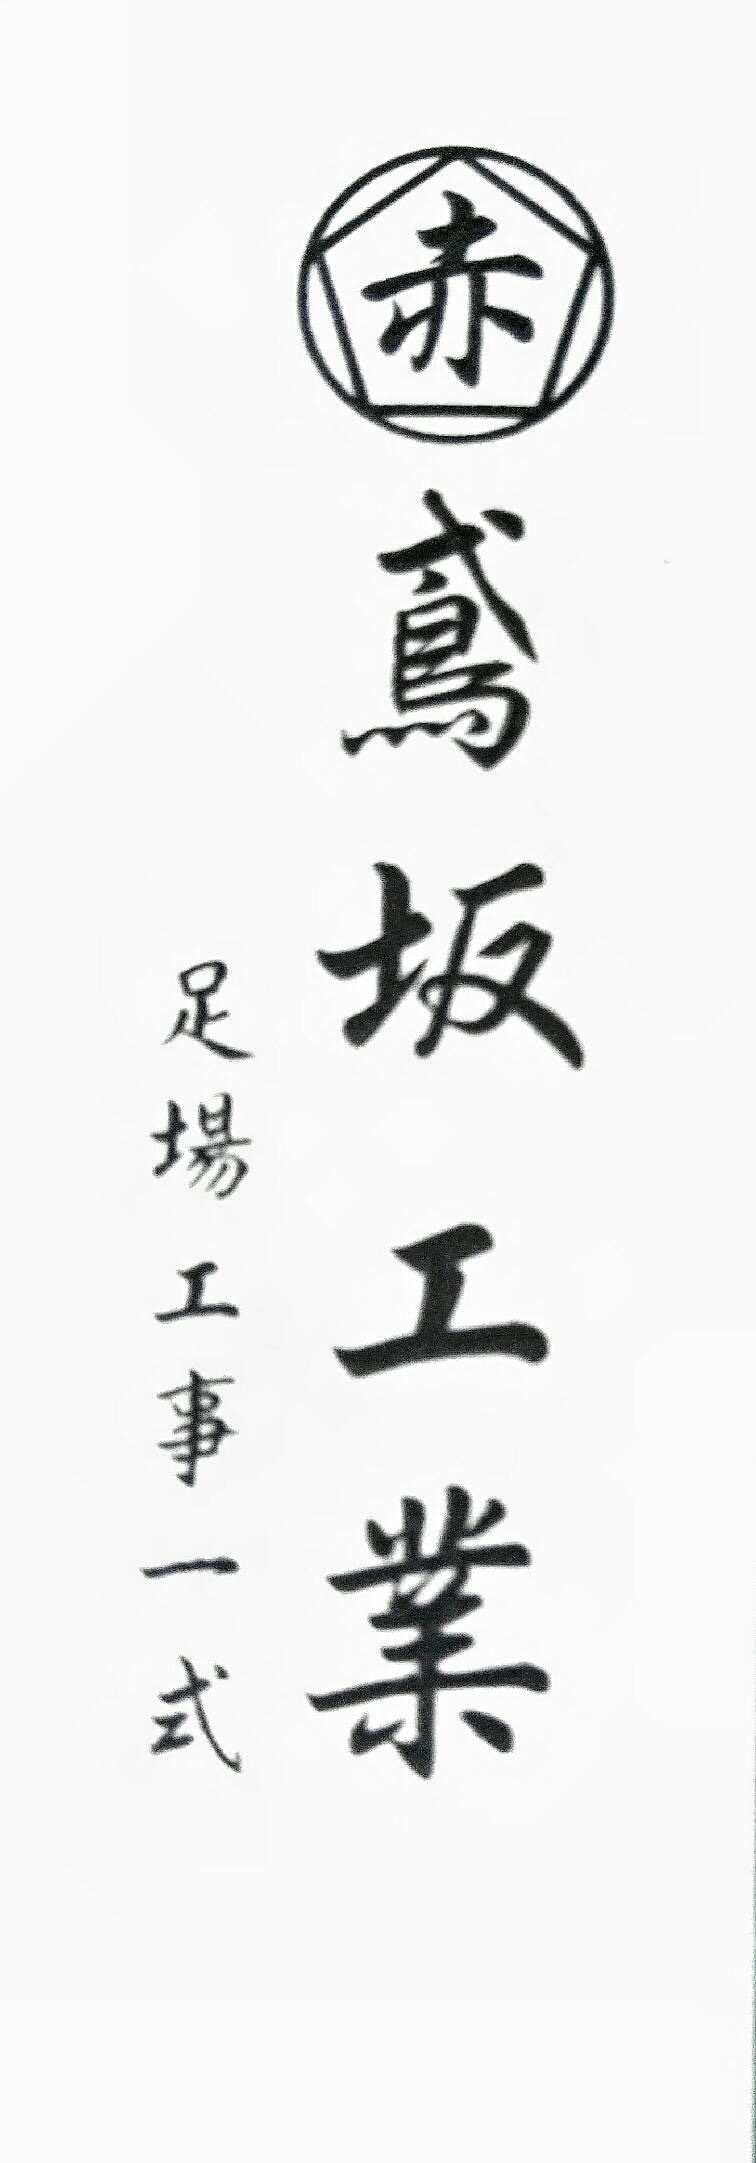 赤
鳶坂工業
足場工事一式